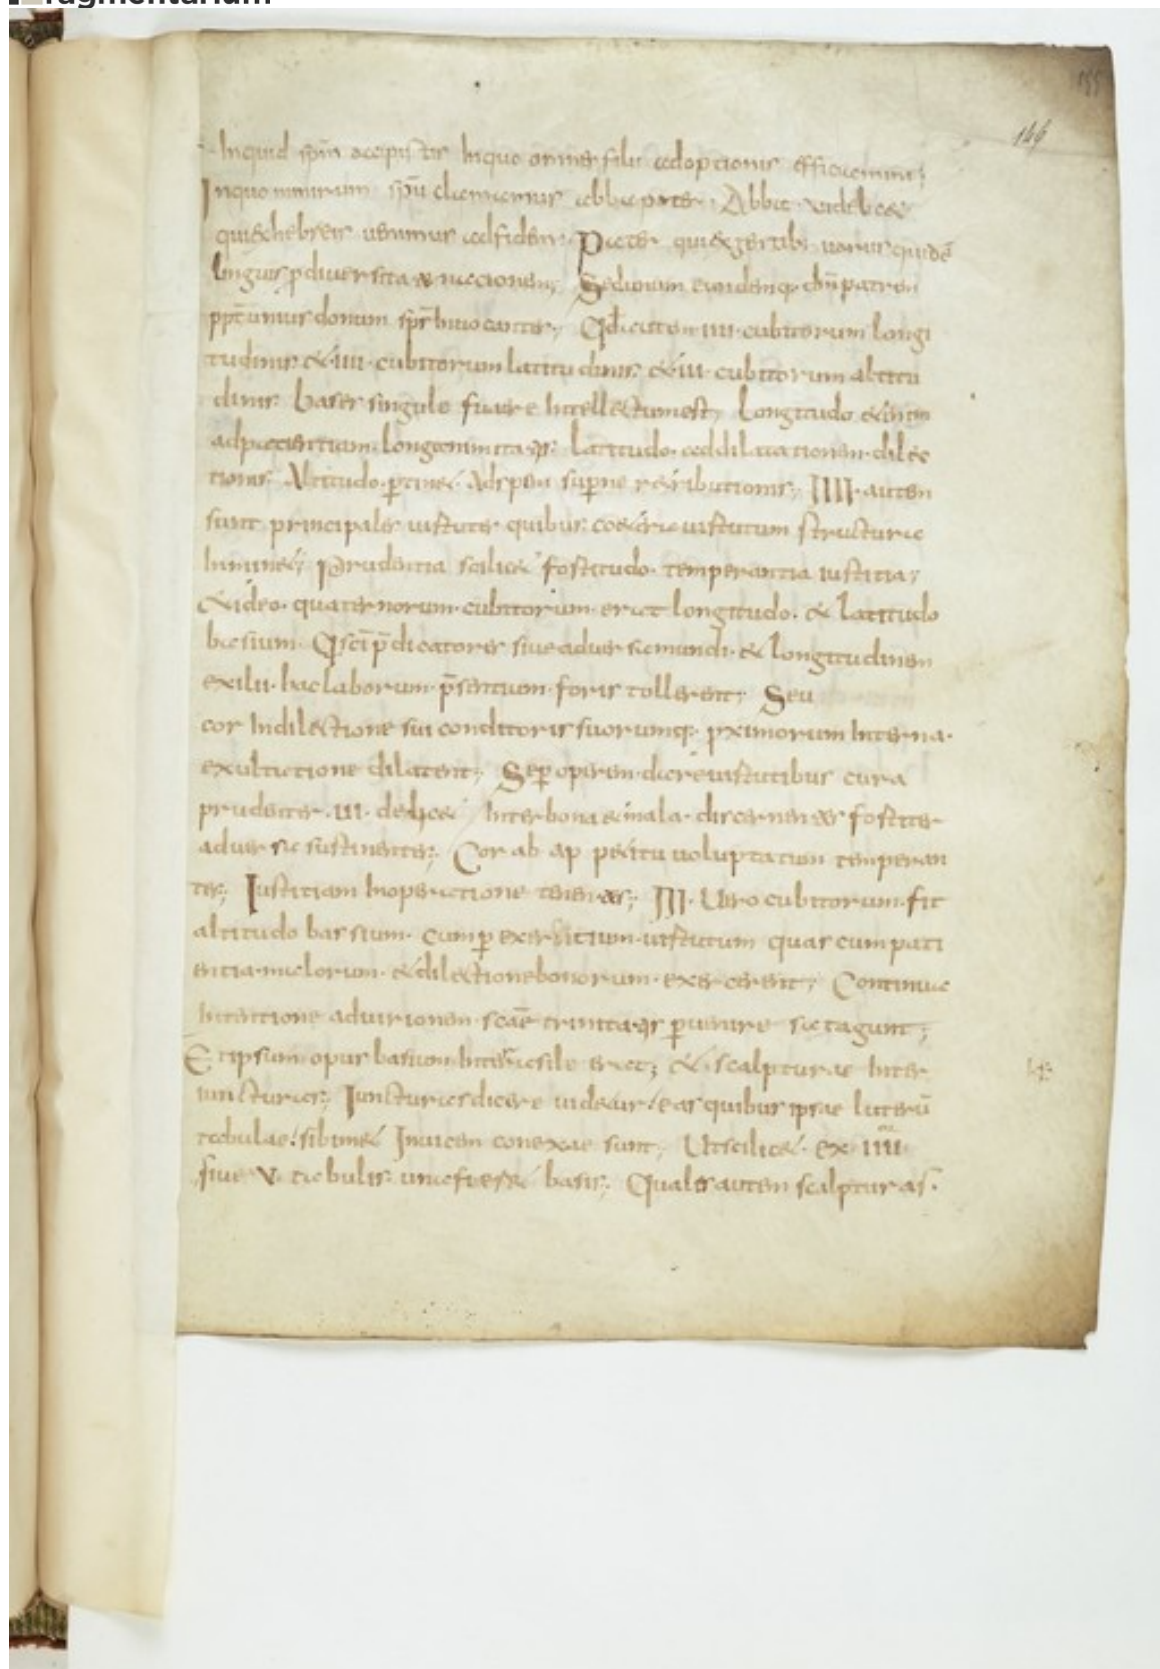 fragmentarium
149
Inquid spm accipistis Inquo omnes filii adoptionis efficiemini;
Inquo nimirum spu clamamus abba pater. Abba videlicet
qui ex hebreis venimus ad fidem. Pater qui ex gentibus unius quide
linguis p diversitate nationem; Sed unum eundemq; dm patrem
ppt unius donum sps Invocantes; Qd autem IIII. cubitorum longi
tudinis & IIII. cubitorum latitudinis & III. cubitorum altitu
dinis bases singule fuere Intellectum est; Longitudo etenim
ad patientiam. longanimitatis. latitudo. ad dilatationem. dilec
tionis. Altitudo. ptinet. Ad spem supne retributionis; IIII. autem
sunt principales virtutes quibus cetera virtutum structura
Innititur; Prudentia scilicet fortitudo. temperantia iustitia;
& ideo. quaternorum. cubitorum. erat longitudo. & latitudo
basium. Q sci pdicatores sive adversa mundi. & longitudinem
exilii. hac laborum. psentium. foris tollerent; Seu
cor In dilectione sui conditoris suorumq; pximorum Interna.
exultatione dilatent; Sep operam. dare virtutibus cura
prudenter. Inter bona & mala. discernentes fortiter
adversa sustinentes; Cor ab appetitu voluptatum temperan
tes; Iustitiam In operatione tenentes; III. Vero cubitorum. fit
altitudo basium. Cum p exercitium. virtutum quas cum pati
entia. malorum. & dilectione bonorum. exercerent; Continua
Intentione ad visionem. scae trinitatis pvenire satagunt;
Et ipsum opus basium. Interrasile erat; & scalpturae Inter
iuncturas; Iuncturas dicere videtur. eas quibus ipsae laterū
tabulae. sibimet Invicem conexae sunt; Ut scilicet. ex. IIII.
sive V. tabulis. una fieret basis; Quales autem scalpturas.